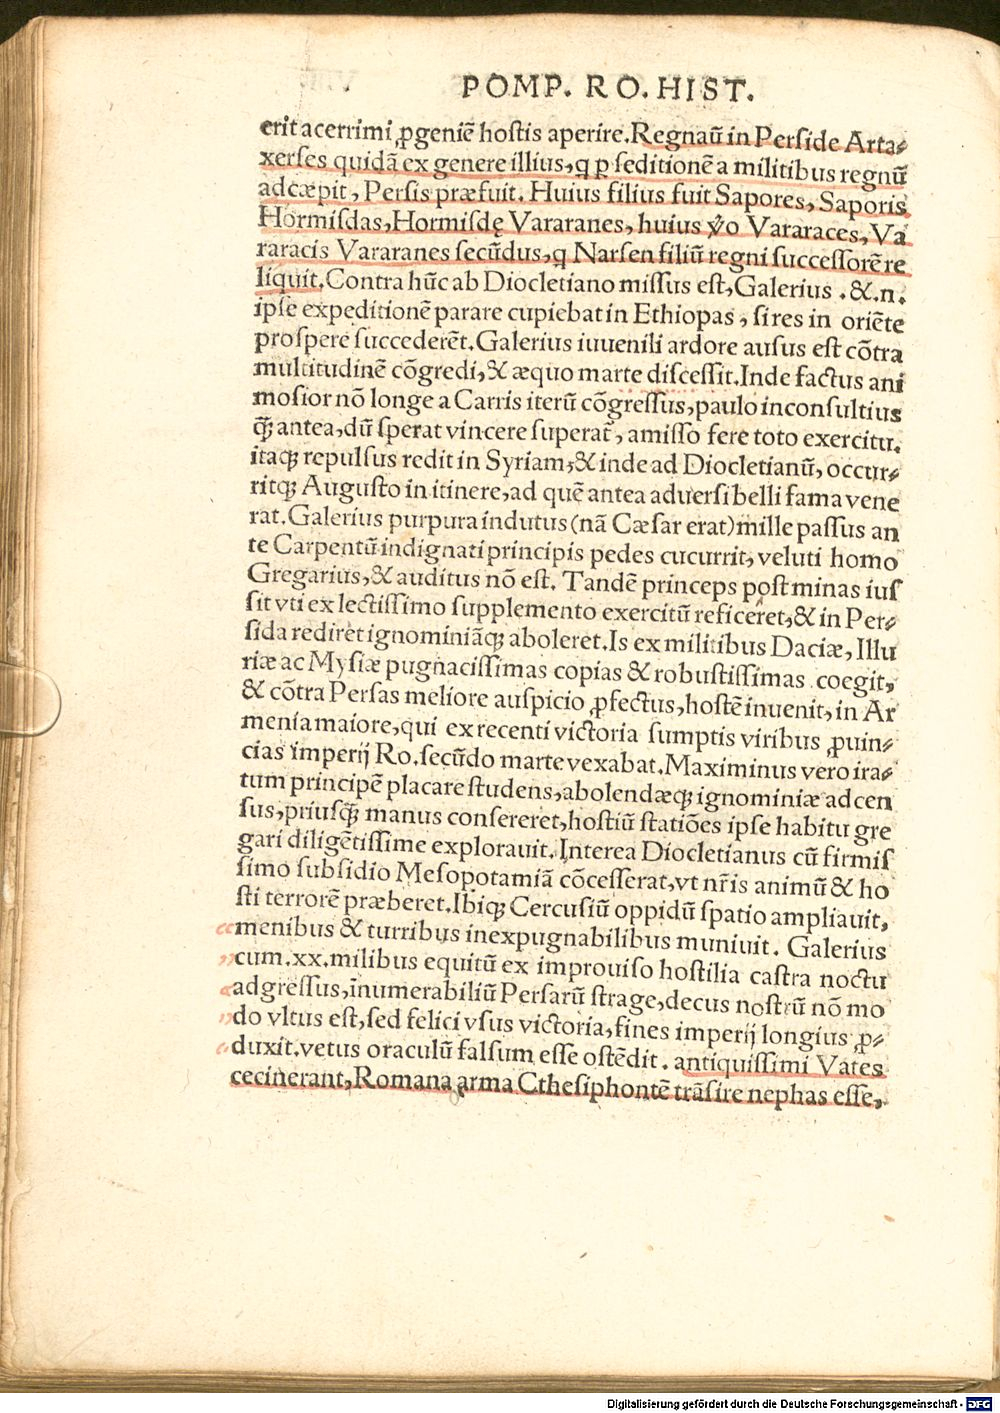 POMP. RO. HIST.
erit acerrimi ꝓgeniē hostis aperire. Regnaū in Perside Arta⸗
xerses quidā ex genere illius, q ꝑ seditionē a militibus regnū
adcæpit, Persis præfuit. Huius filius fuit Sapores, Saporis
Hormisdas, Hormisdę Vararanes, huius v̊o Vararaces, Va
raracis Vararanes secūdus, q Narsen filiū regni successorē re
liquit. Contra hūc ab Diocletiano missus est, Galerius . &. n.
ipse expeditionē parare cupiebat in Ethiopas, si res in oriēte
prospere succederēt. Galerius iuuenili ardore ausus est cōtra
multitudinē cōgredi, & æquo marte discessit. Inde factus ani
mosior nō longe a Carris iterū cōgressus, paulo inconsultius
q̄ꝫ antea, dū sperat vincere superat᷑, amisso fere toto exercitu.
itaqꝫ repulsus redit in Syriam, & inde ad Diocletianū, occur⸗
ritqꝫ Augusto in itinere, ad quē antea aduersi belli fama vene
rat. Galerius purpura indutus (nā Cæsar erat) mille passus an
te Carpentū indignati principis pedes cucurrit, veluti homo
Gregarius, & auditus nō est. Tandē princeps post minas ius
sit vti ex lectissimo supplemento exercitū reficeret, & in Per⸗
sida rediret ignominiāqꝫ aboleret. Is ex militibus Daciæ, Illu
riæ ac Mysiæ pugnacissimas copias & robustissimas coegit,
& cōtra Persas meliore auspicio ꝓfectus, hostē inuenit, in Ar
menia maiore, qui ex recenti victoria sumptis viribus ꝓuin⸗
cias imperij Ro. secūdo marte vexabat. Maximinus vero ira⸗
tum principē placare studens, abolendæqꝫ ignominiæ adcen
sus, priusq̄ꝫ manus consereret, hostiū statiōes ipse habitu gre
gari diligētissime explorauit. Interea Diocletianus cū firmis
simo subsidio Mesopotamiā cōcesserat, vt nr̄is animū & ho
sti terrorē præberet. Ibiqꝫ Cercusiū oppidū spatio ampliauit,
menibus & turribus inexpugnabilibus muniuit. Galerius
cum .xx. milibus equitū ex improuiso hostilia castra noctu
adgressus, īnumerabiliū Persarū strage, decus nostrū nō mo
do vltus est, sed felici vsus victoria, fines imperij longius ꝓ⸗
duxit. vetus oraculū falsum esse ostēdit. antiquissimi Vates
cecinerant, Romana arma Cthesiphontē trāsire nephas esse,
Digitalisierung gefördert durch die Deutsche Forschungsgemeinschaft - DFG